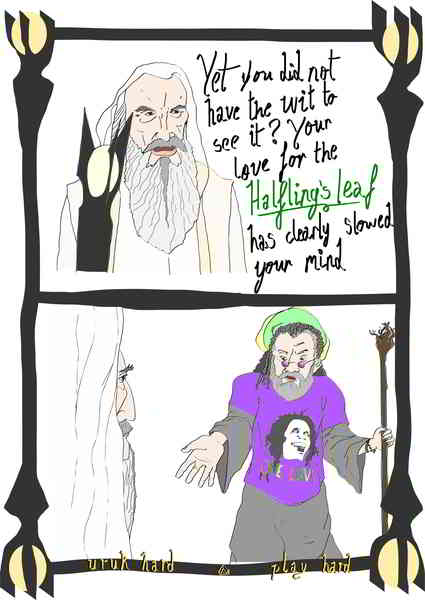 Yet you did not
have the wit to
see it? Your
love for the
Halfling's leaf
has clearly slowed
your mind
ONE LOVE
uruk hard play hard